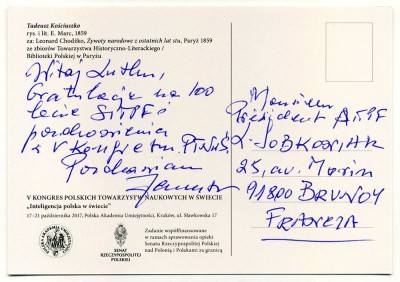 Tadeusz Kościuszko
rys. i lit. E. Marc, 1859
za: Leonard Chodźko, Żywoty narodowe z ostatnich lat stu, Paryż 1859
ze zbiorów Towarzystwa Historyczno-Literackiego /
Biblioteki Polskiej w Paryżu
Witaj
Gratulacje na 100
lecie SITPF i
pozdrowienia
z V Kongresu
Pozdrawiam
V KONGRES POLSKICH TOWARZYSTW NAUKOWYCH W ŚWIECIE
„Inteligencja polska w świecie”
17–21 października 2017, Polska Akademia Umiejętności, Kraków, ul. Sławkowska 17
SENAT
RZECZYPOSPOLITEJ
POLSKIEJ
Zadanie współfinansowane
w ramach sprawowania opieki
Senatu Rzeczypospolitej Polskiej
nad Polonią i Polakami za granicą
Monsieur
Président AITPF
25, av.
91800 BRUNOY
FRANCJA